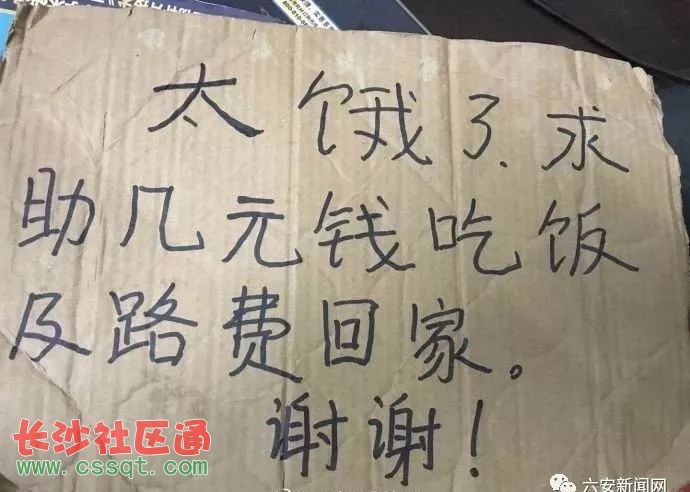 太饿了、求
助几元钱吃饭
及路费回家。
谢谢！
长沙社区通
www.cssqt.com
六安新闻网